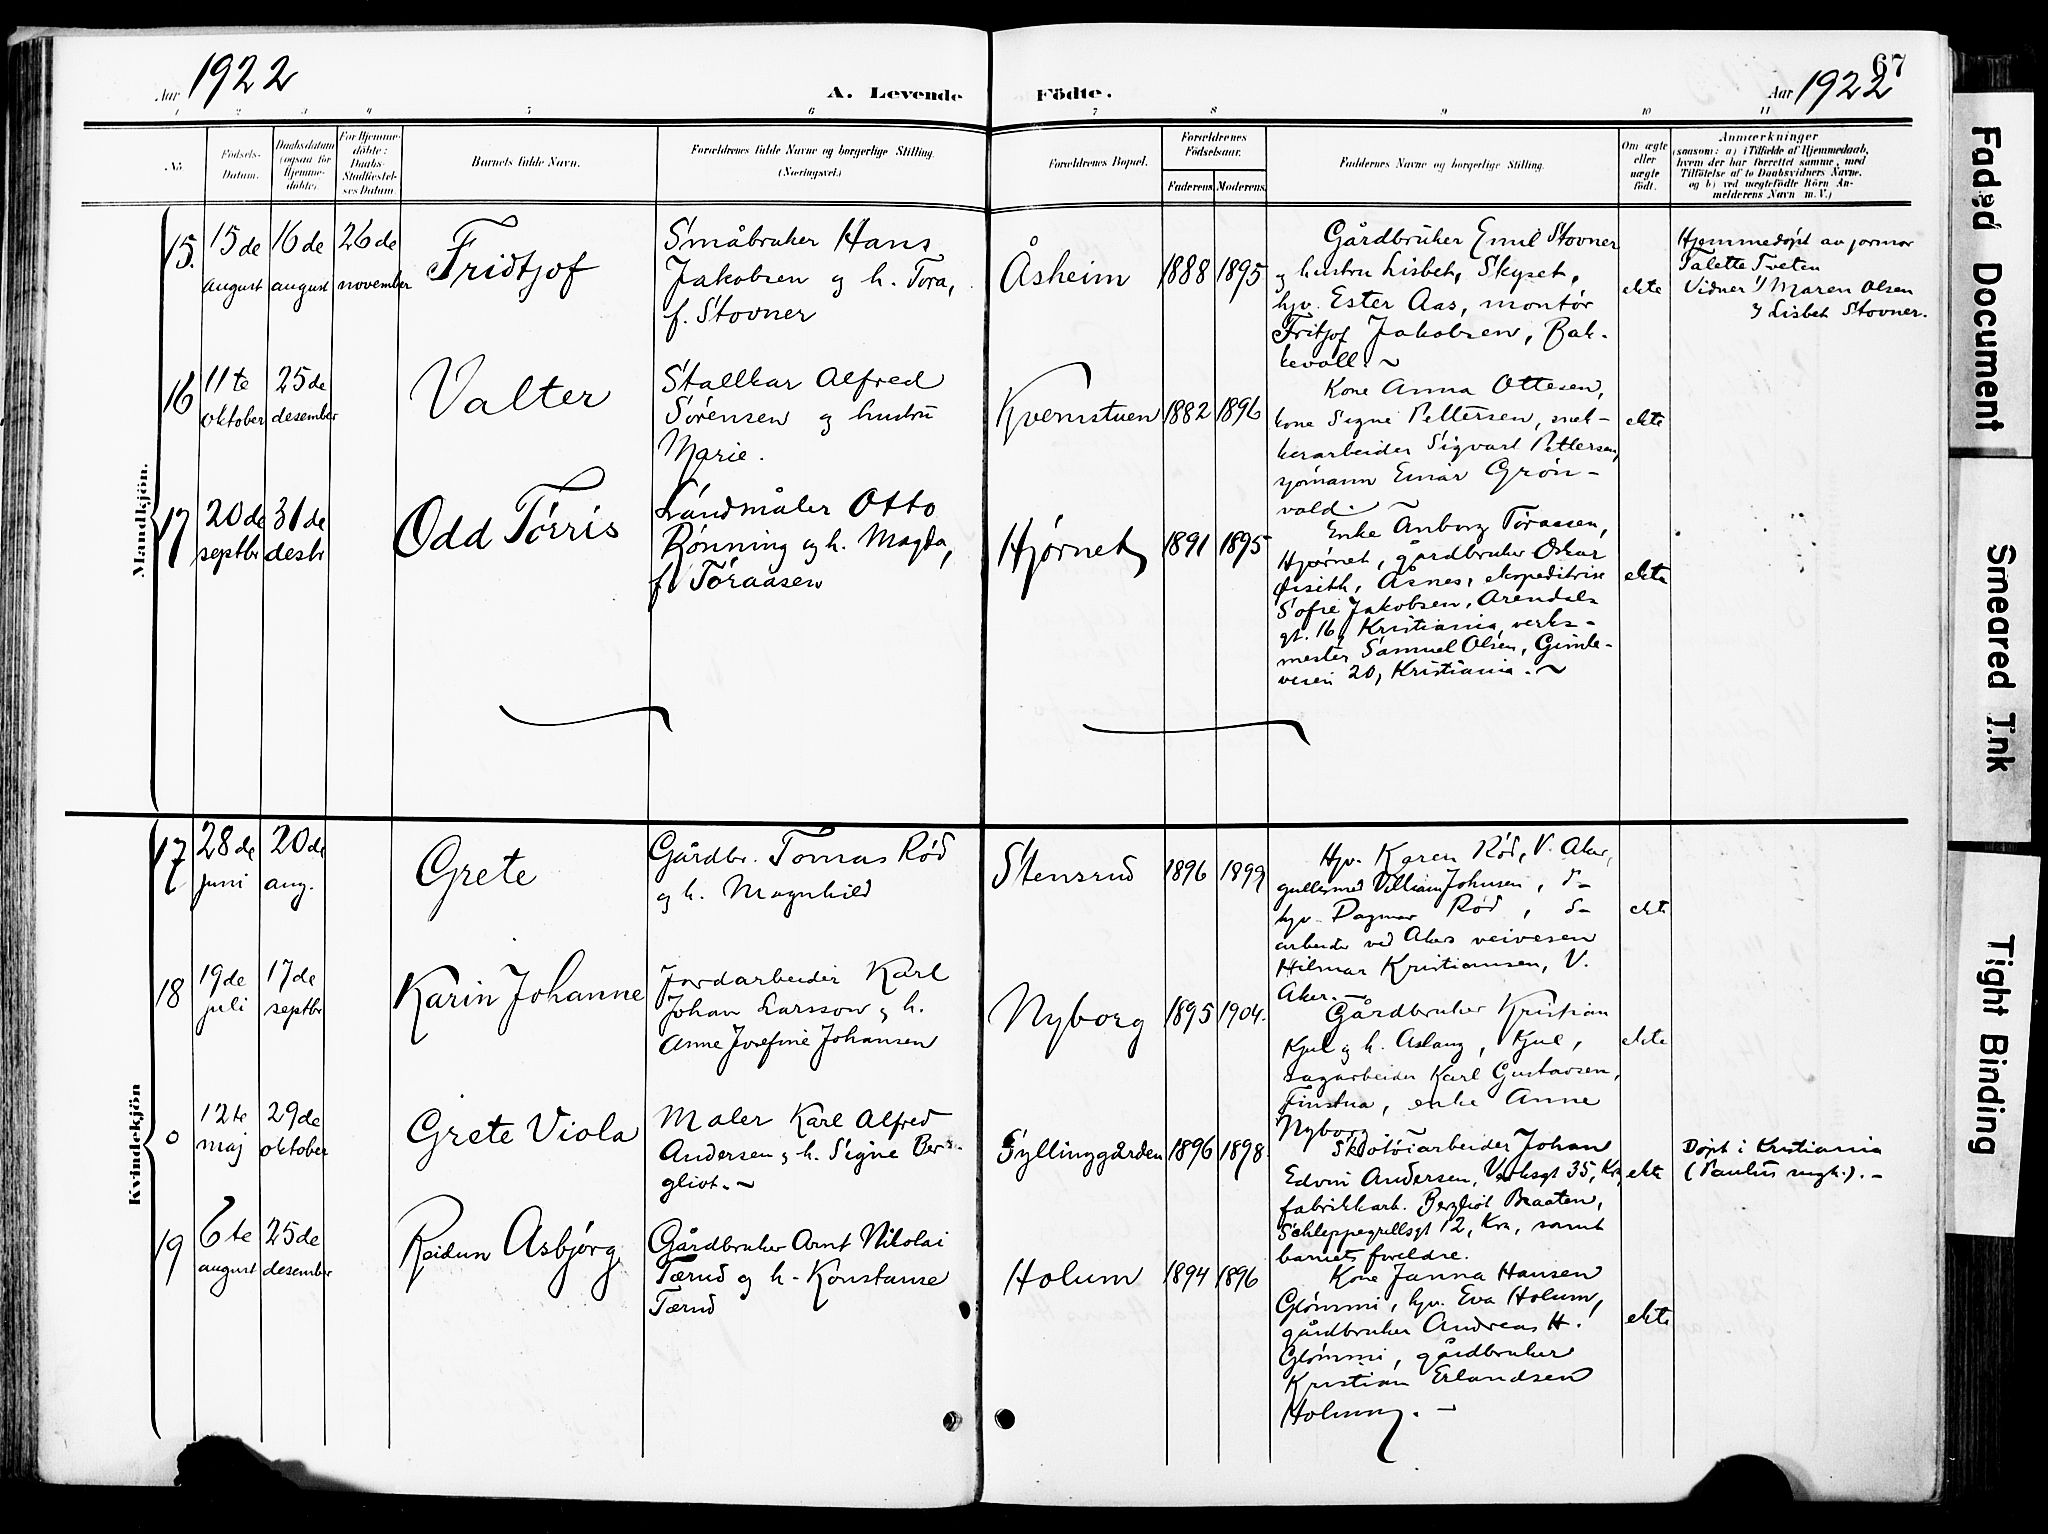 67
Aar 1922
A. Levende
Födte.
Aar 1922
1 2 3 4 5 6 7 8 9 10 11
No
Födsels-
Datum.
Daabsdatum
(ogsaa for
Hjemme-
döbte).
For Hjemme-
döbte:
Daabs-
Stadfæstel-
ses Datum.
Barnets fulde Navn.
Forældrenes fulde Navne og borgerlige Stilling.
(Næringsvei.)
Forældrenes Bopæl.
Forældrenes
Födselsaar.
Faderens Moderens.
Faddernes Navne og borgerlige Stilling.
Om ægte
eller
uægte
födt.
Anmærkninger
(saasom: a) i Tilfælde af Hjemmedaab,
hvem der har forrettet samme, med
Tilföielse af to Daabsvidners Navne,
og b) ved uægtefödte Börn An-
melderens Navn m.V.)
Mandkjön.
15.
15de
august
16de
august
26de
november
Fridtjof
Småbruker Hans
Jakobsen og h. Tora,
f. Stovner
Åsheim
1888
1895
Gårdbruker Emil Stovner
og hustru Lisbet, Skyset,
hjv. Ester Aas, montør
Fritjof Jakobsen, Bak-
kevoll. ~
ekte
Hjemmedøpt av jormor
Talette Tveten
Vidner 1) Maren Olsen
2) Lisbet Stovner.
16
11te
oktober
25de
desember
Valter
Stallkar Alfred
Sørensen og hustru
Marie.
Kvernstuen
1882
1896
Kone Anna Ottesen,
kone Signe Pettersen, mek-
kerarbeider Sigvart Pettersen,
sjømann Einar Grøn-
vold. ~
ekte
17
20de
septbr
31de
desbr
Odd Torris
Landmåler Otto
Rønning og h. Magda,
f. Toraasen
Hjørnet
1891
1895
Enke Anborg Toraasen,
Hjørnet, gårdbruker Oskar
Åsnes, ekspeditrise
Sofie Jakobsen, Arendals
gt. 16, Kristiania, verks-
mester Samuel Olsen, Gimle-
veien 20, Kristiania. ~
ekte
Kvindekjön
17
28de
juni
20de
aug.
Grete
Gårdbr. Tomas Rød
og h. Magnhild
Stensrud
1896
1899
Hjv. Karen Rød, V. Aker,
gullsmed Villiam Johnsen, do
hjv. Dagmar Rød, do
arbeider ved Akers veivesen
Hilmar Kristiansen, V.
Aker. —
ekte
18
19de
juli
17de
septbr
Karin Johanne
Jordarbeider Karl
Johan Larsson og h.
Anne Josefine Johansen
Nyborg
1895
1904.
Gårdbruker Kristian
Kjul og h. Aslaug, Kjul,
sagarbeider Karl Gustavsen,
Finstua, enke Anne
Nyborg.
ekte
0
12te
maj
29de
oktober
Grete Viola
Maler Karl Alfred
Andersen og h. Signe Ber-
gliot. ~
Gyllinggården
1896
1898
Skotøiarbeider Johan
Edvin Andersen, Verksgt 35, Kra,
fabrikkarb. Bergliot Braaten,
Schleppegrellsgt 12, Kra, samt
barnets foreldre.
ekte
Døpt i Kristiania
(Paulus mgh.). -
19
6te
august
25de
desember
Reidun Asbjørg
Gårdbruker Arnt Nikolai
Tærud og h. Konstanse
Tærud
Holum
1894
1896
Kone Janna Hansen
Glømmi, hjv. Eva Holum,
gårdbruker Andreas H.
Glømmi, gårdbruker
Kristian Erlandsen
Holum. —
ekte
Faded Document
Smeared Ink
Tight Binding